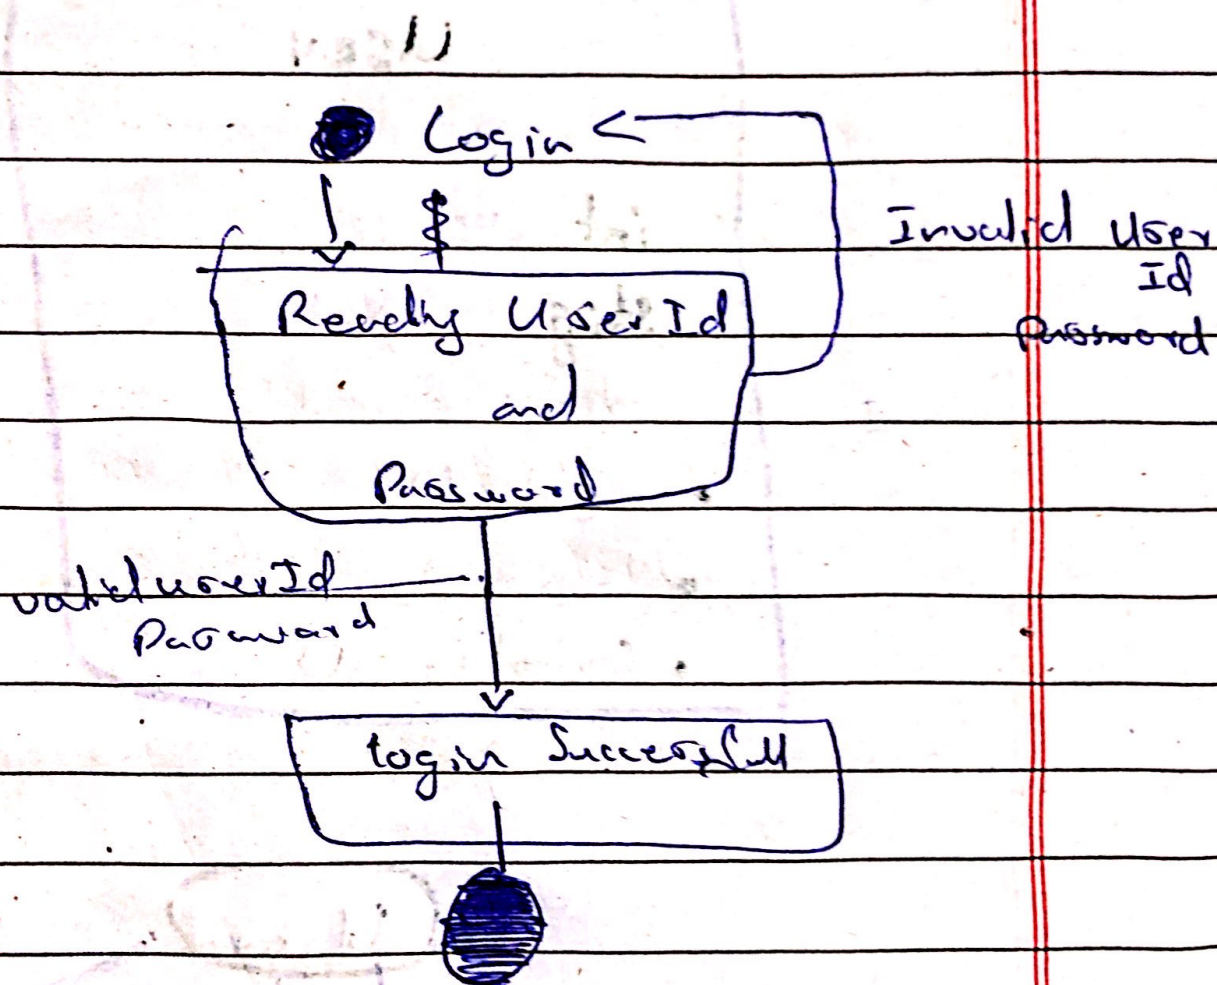 Login
Invalid User
Id
Password
Reading User Id
and
Password
valid user Id
Password
login Successfull